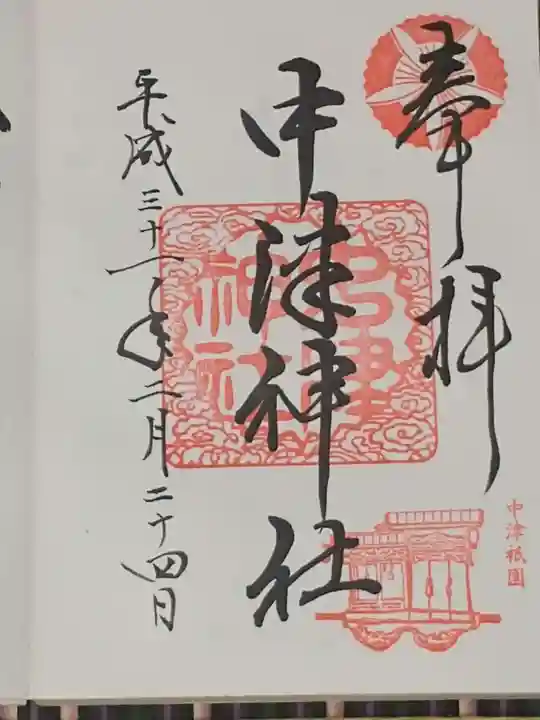 奉拝
中津神社
中津
神社
中津祇園
平成三十一年二月二十四日